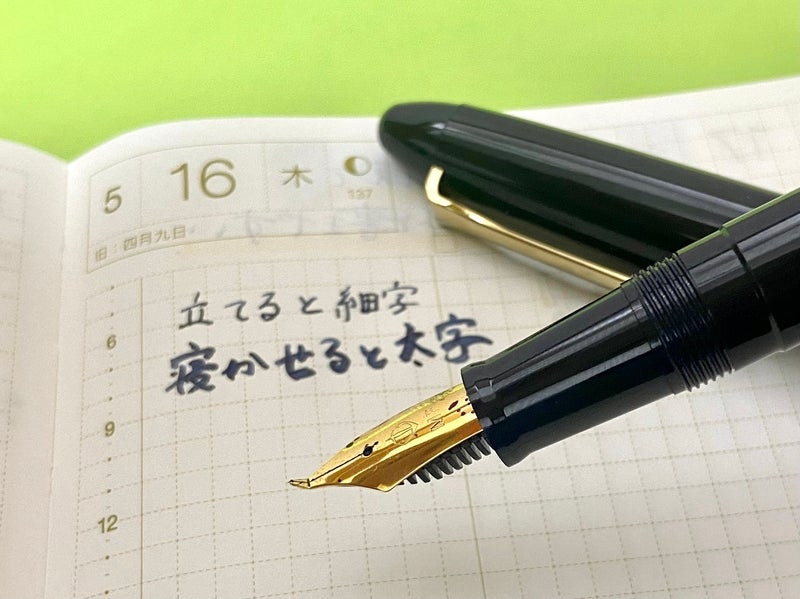 5 16 木
137
旧:四月九日
立てると細字
寝かせると太字
6
9
12